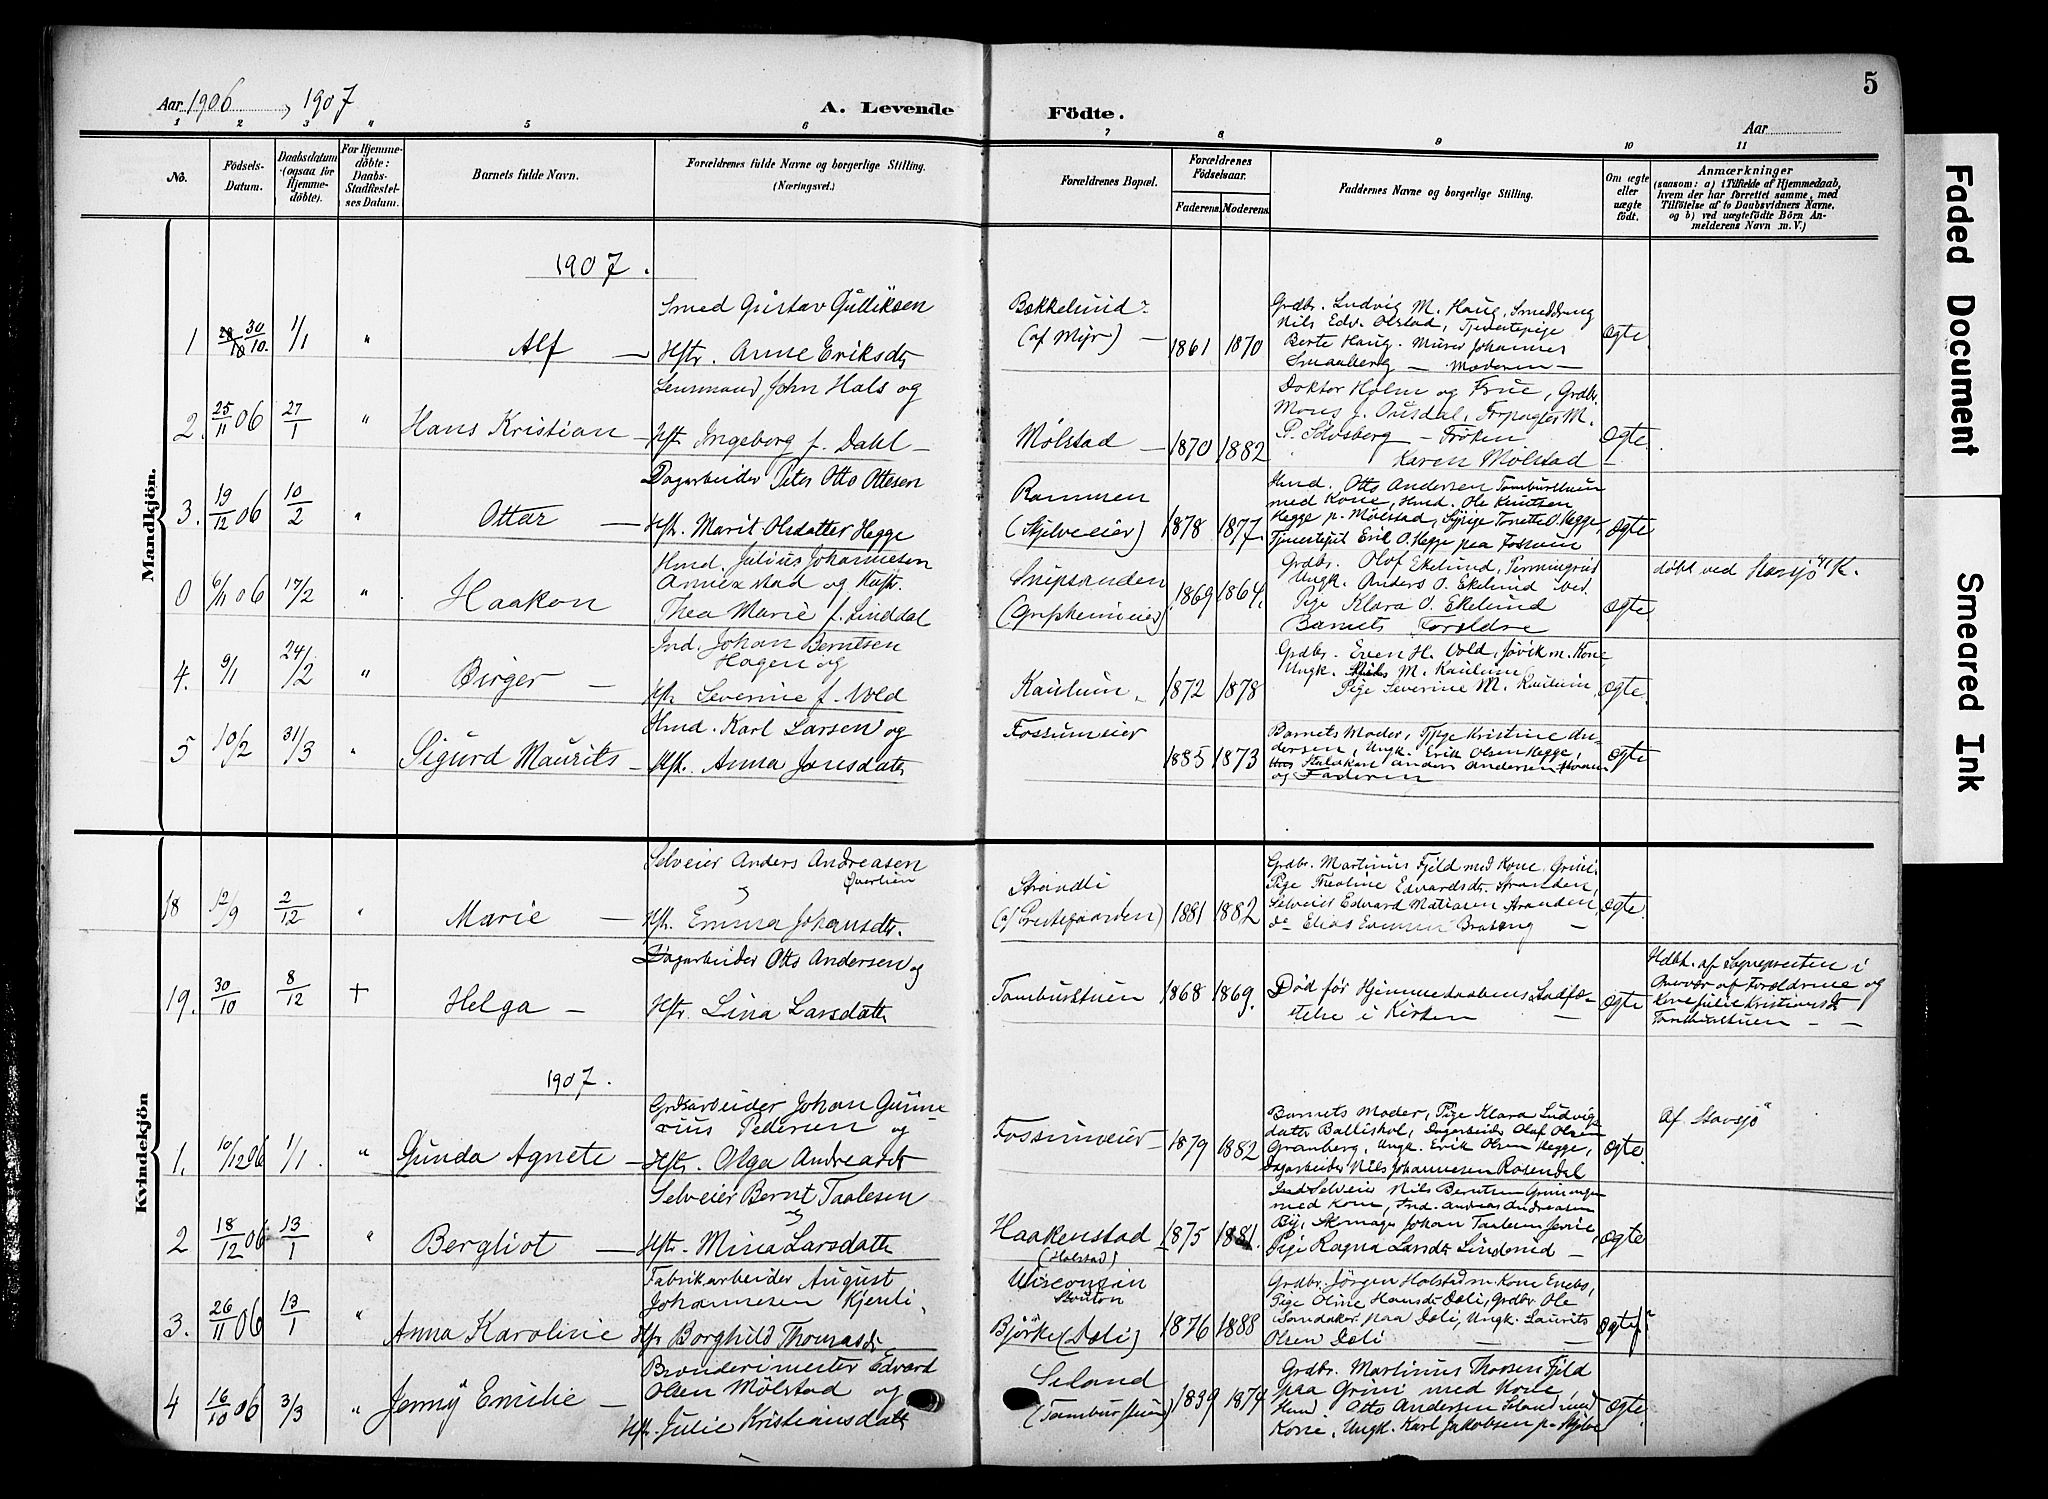 Aar 1906, 1907
A. Levende Födte.
5
Aar
1 2 3 4 5 6 7 8 9 10 11
No.
Födsels-Datum.
Daabsdatum (ogsaa for Hjemmedöbte).
For Hjemmedöbte: Daabs-Stadfestelses Datum.
Barnets fulde Navn.
Forældrenes fulde Navne og borgerlige Stilling.
(Næringsvei.)
Forældrenes Bopæl.
Forældrenes Födselsaar.
Faderens. Moderens.
Faddernes Navne og borgerlige Stilling.
Om ægte eller uægte födt.
Anmærkninger
(saasom: a) i Tilfælde af Hjemmedaab,
hvem der har forrettet samme, med
Tilföielse af to Daabsvidners Navne.
og b) ved uægtefödte Börn An-
melderens Navn m. V.)
Mandkjön.
1907.
1 30/10. 1/1 " Alf —
Smed Gustav Gulliksen
Hstr. Anne Eriksdtr
Bækkelund
(af Myr) —
1861 1870
Grdbr. Ludvig M. Haug, Smeddreng
Nils Edv. Olstad, Tjenestepige
Berte Haug. Murer Johannes
Smaaberg — Moderen —
Ægte.
2. 25/11 06 27/1 " Hans Kristian —
Lensmand John Hals og
Hstr. Ingeborg f. Dahl —
Mølstad —
1870 1882
Doktor Holm og Frue, Grdbr.
Mons J. Ousdal, Forpagter M.
P. Solvsberg — Frøken
Karen Mølstad —
Ægte.
3. 19/12 06 10/2 " Ottar —
Dagarbeider Peter Otto Ottesen
Hstr. Marit Olsdatter Hegge
Rammen
(Skjelveeier)
1878 1877.
Hmd. Otto Andersen Tamburstuen
med Kone, Hmd. Ole Knutsen
Hegge p. Mølstad, Sypige Tonette O. Hegge,
Tjenestejut Erik O. Hegge paa Fossum
Ægte
0 6/11 06 17/2 " Haakon
Hmd. Julius Johannesen
Annexstad og Hustr.
Thea Marie f. Linddal
Snipsanden
1869 1864.
Grdbr. Olof Ekelund,
Ungk. Anders O. Ekelund
Pige Klara O. Ekelund
Barnets Forældre
Ægte
døbt ved Stavsjø K.
4. 9/1 24/2 " Birger —
Ind. Johan Berntsen
Hagen og
Hstr Severine f. Vold
Kaulum
1872 1878
Grdbr. Even H. Vold, Gjøvik m. Kone
Ungk. M. Kaulum
Pige Severine M. Kaulum,
Ægte.
5 10/2 31/3 " Sigurd Maurits —
Hmd. Karl Larsen og
Hstr. Anna Jensdatter
Fossumeier
1885 1873
Barnets Moder, Pige Kristine An-
dersen, Ungk. Erik Olsen Hegge,
Anders Andersen
og Faderen
Ægte
Kvindekjön
18 12/9 2/12 " Marie —
Selveier Anders Andreasen
Øverlien
Hstr. Emma Johansdtr.
Strandli
(af Prestegaarden)
1881 1882
Grdbr. Martinius Fjeld med Kone, Grini
Pige Theoline Edvardsdtr. Stranden,
Selveier Edvard Matiasen Stranden,
do Elias Evensen Brateng —
Ægte.
19. 30/10 8/12 + Helga —
Dagarbeider Otto Andersen og
Hstr. Lina Larsdatter
Tamburstuen
1868 1869.
Død før Hjemmedaabens Stadfæ-
stelse i Kirken —
Ægte
Hdbt. af Sognepresten i
Overvær af Forældrene og
Kone Julie Kristiansdtr
Tamburstuen — —
1907.
1. 10/12 06 1/1. " Gunda Agnete —
Grdsarbeider Johan Gunne-
rius Pedersen og
Hstr. Olga Andreasdtr
Fossumeier —
1879 1882
Barnets Moder, Pige Klara Ludvigs-
datter Balliskol, Dagarbeider Olaf Olsen
Granberg, Ungk. Erik Olsen Hegge,
Dagarbeider Nils Johannesen Rosendal
Ægte.
Af Stavsjø
2 18/12 06 13/1 " Bergliot —
Selveier Bernt Taalesen
og
Hstr. Mina Larsdatter
Haakenstad
(Holstad)
1875 1881.
Selveier Nils Berntsen
med Kone, Ind. Andreas Andreasen
By, Skomager Johan Taalesen
Pige Ragna Larsdtr Linderud —
Ægte
3. 26/11 06 13/1 " Anna Karoline
Fabrikarbeider August
Johannesen Kjenli,
Hstr Borghild Thomasdtr
Wisconsin
Stouton
Björke (Dæli)
1876 1888
Grdbr. Jörgen Holstad m. Kone Enebo,
Pige Oline Hansdtr Dæli, Grdbr Ole
Sandaker paa Dæli, Ungk. Laurits
Olsen Dæli — —
Ægte?
4 16/10 06 3/3 " Jenny Emilie —
Brønderimester Edvard
Olsen Mølstad og
Hstr. Julie Kristiansdatter
Seland
(Tamburstuen)
1839 1874
Grdbr. Martinius Thoresen Fjeld
paa Grini med Kone,
Hmd Otto Andersen Seland med
Kone, Ungk. Karl Jakobsen p. Skjelve
Ægte.
Faded Document
Smeared Ink